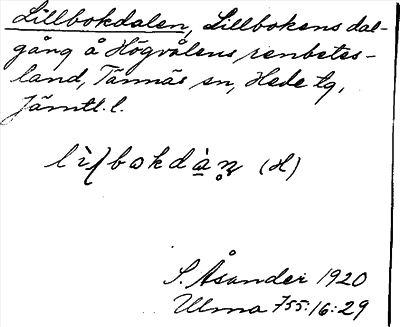 Lillbokdalen, Lillbokens dal-
gång å Högvålens renbetes-
land, Tännäs sn, Hede tg,
Jämtl. l.
(H)
S. Åsander 1920
Ulma 755:16:29